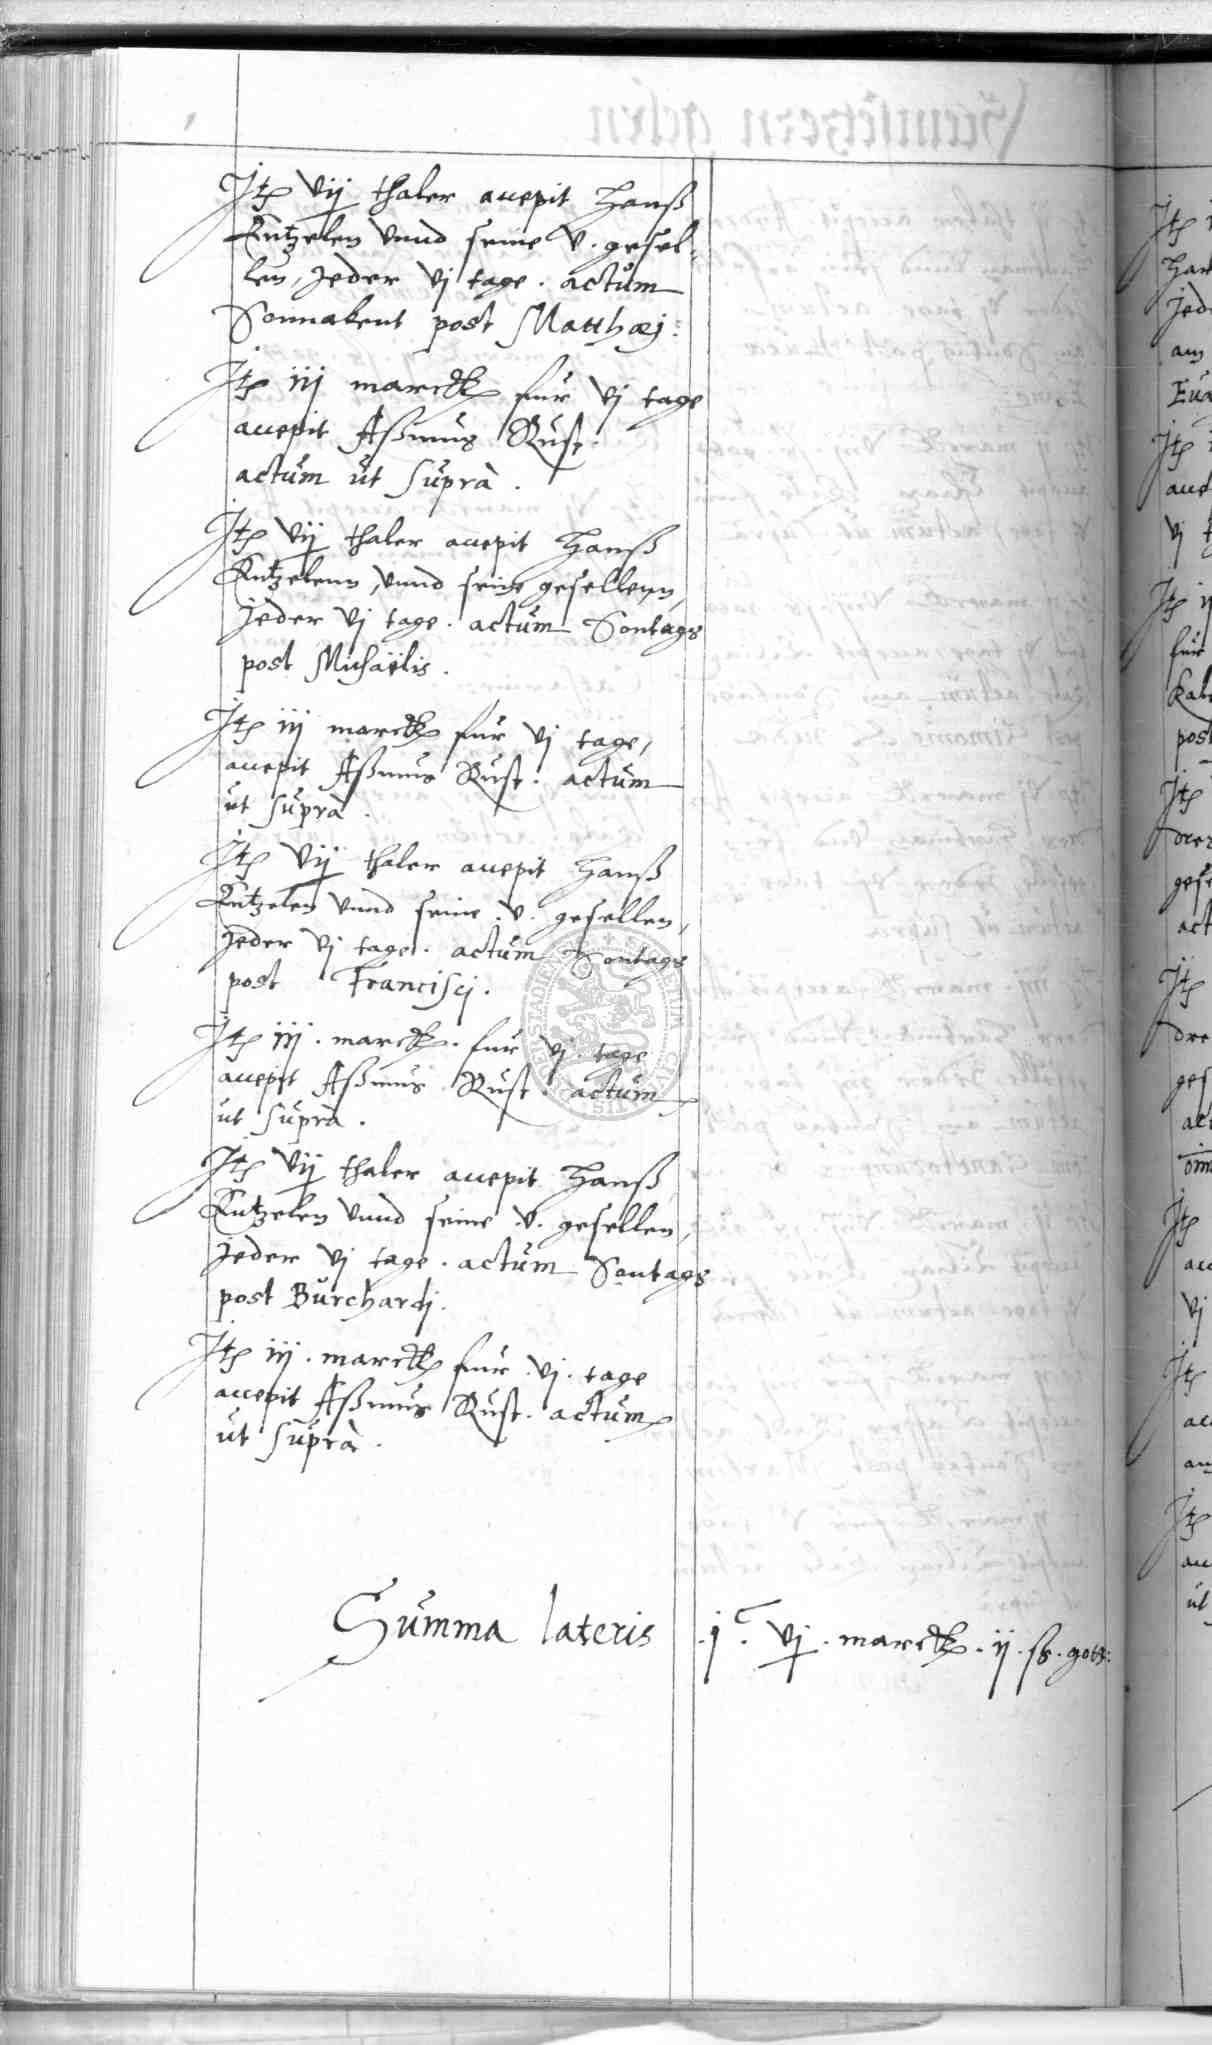 Jtem vij thaler accepit Hanß
Kutzelen vnnd seine v. gesel-
len, Jeder vj tage. actum
Sonnabent post Matthæj:
Jtem iij marck für vj tage
accepit Aßmus Rust.
actum ut suprà.
Jtem vij thaler accepit Hanß
Kutzelenn, vnnd seine gesellenn,
Jeder vj tage. actum Sontags
post Michaëlis.
Jtem iij marck für vj tage,
accepit Aßmus Rust. actum
ut suprà.
Jtem vij thaler accepit Hanß
Kutzelen vnnd seine .v. gesellen,
Jeder vj tage. actum Sontags
post Francisci.
Jtem iij. marck. für vj. tage
accepit Aßmus Rust. actum
ut suprà.
Jtem vij thaler accepit Hanß
Kutzelen vnnd seine .v. gesellen,
Jeder vj tage. actum Sontags
post Burchardj.
Jtem iij. marck für .vj. tage
accepit Aßmus Rust. actum
ut suprà.
Summa lateris .j c. vj. marck. ij. ß. gott: